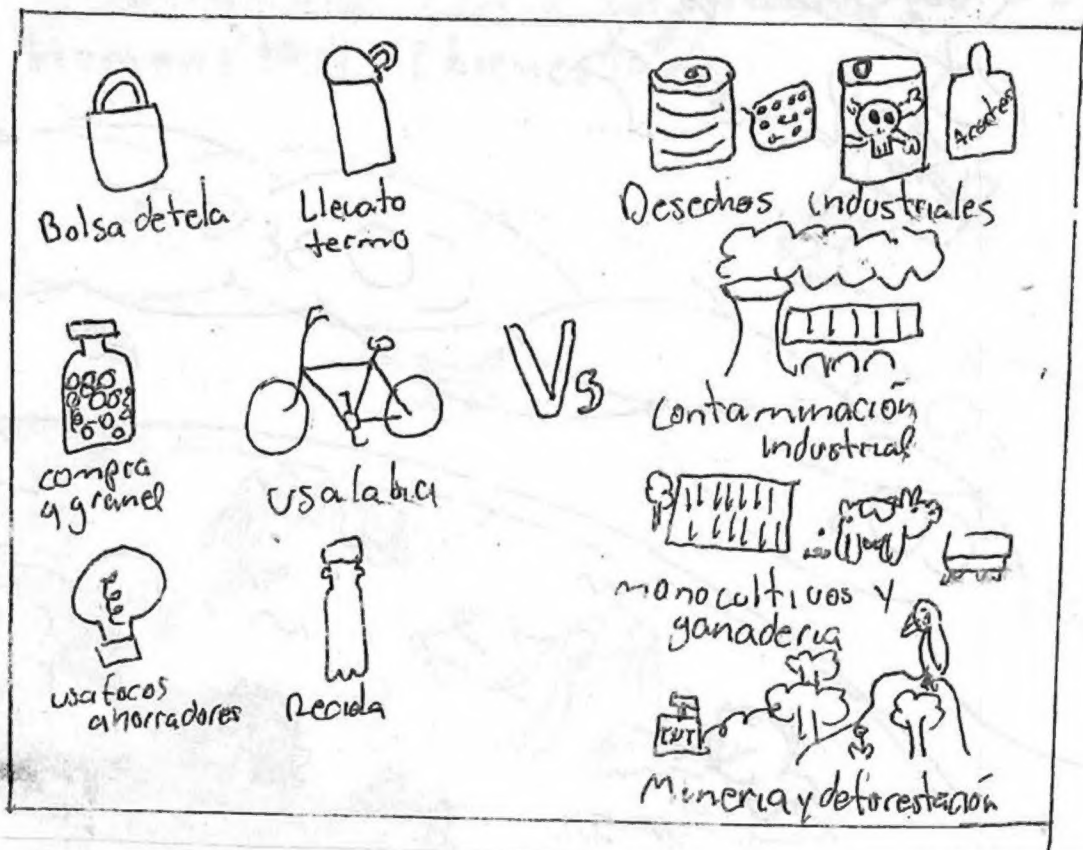 Bolsa de tela
Llevato
termo
compra
a granel
usa la bici
usa focos
ahorradores
Recicla
Vs
Desechos industriales
Aceites
contaminación
industrial
monocultivos y
ganaderia
TNT
Mineria y deforestación